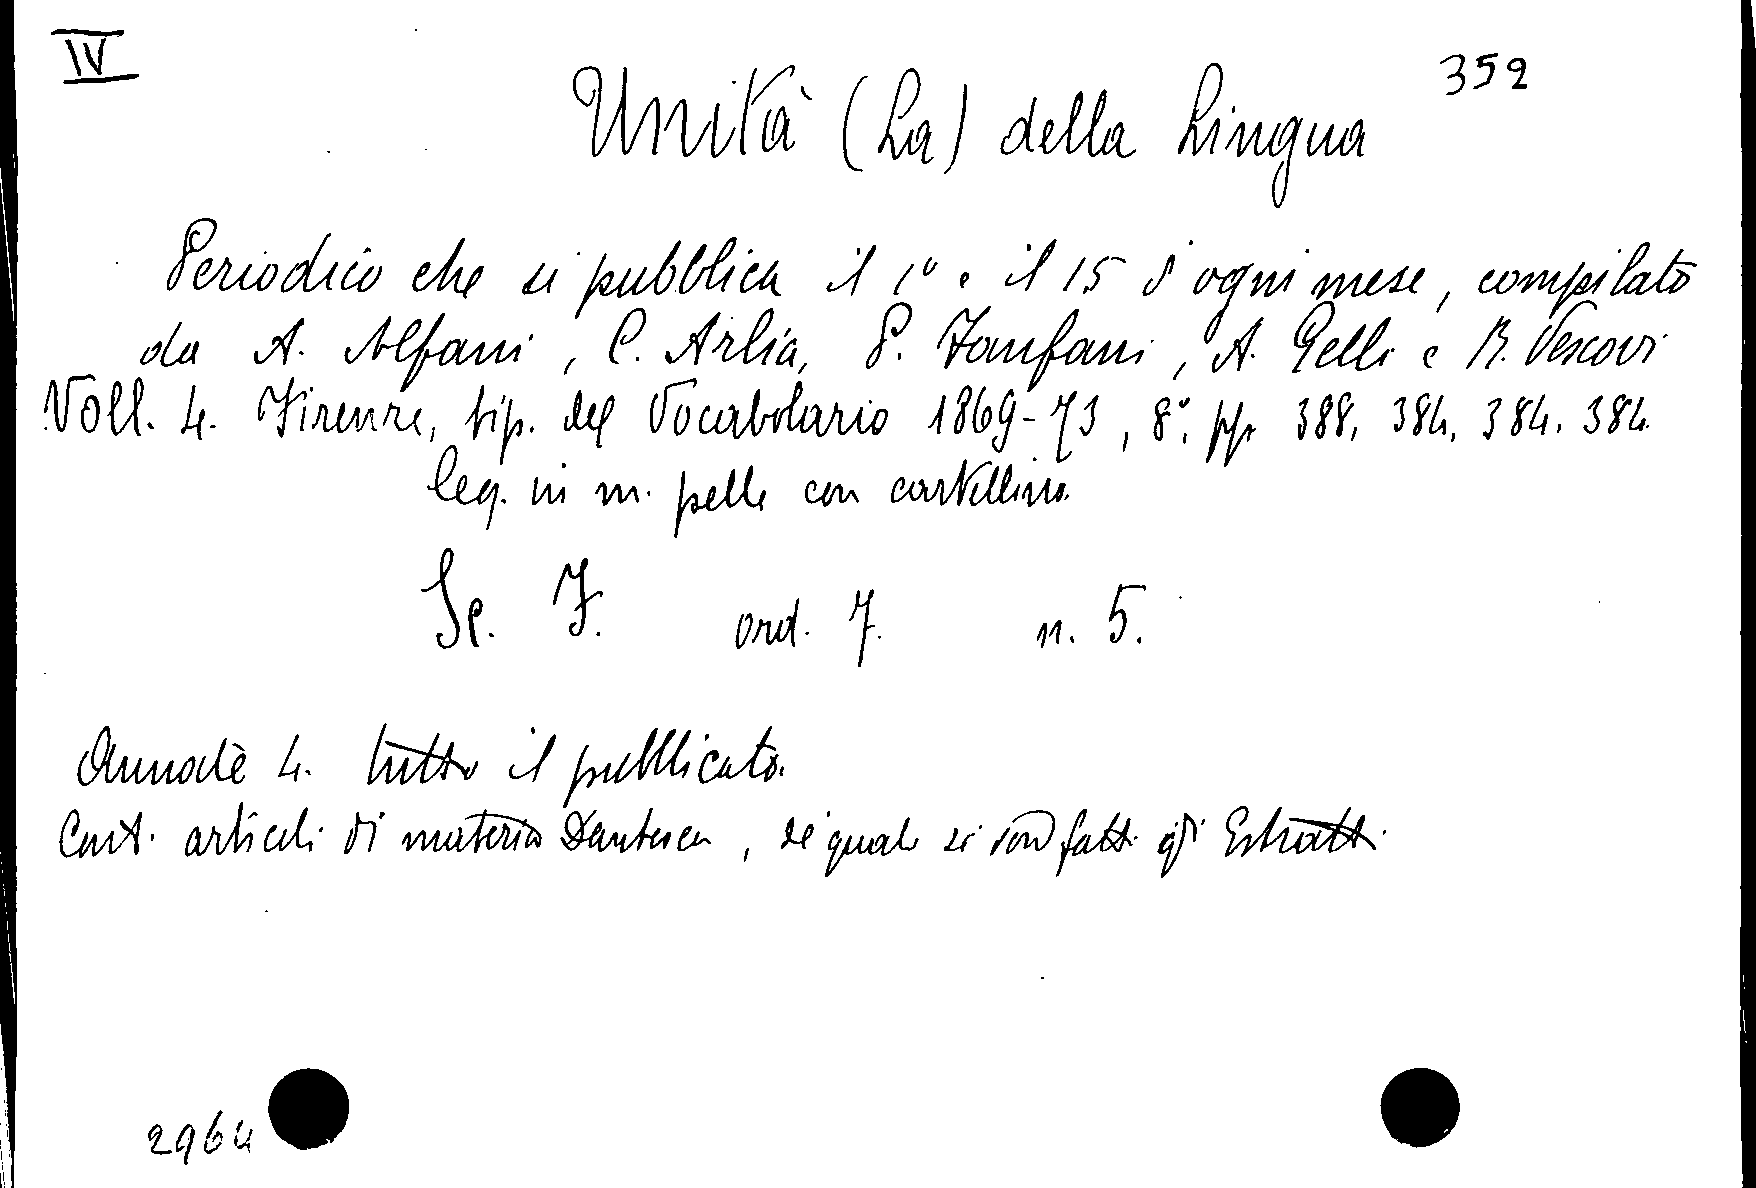 IV
352
Unità (La) della Lingua
Periodico che si pubblica il 1° e il 15 d'ogni mese, compilato
da A. Alfani, C. Arlia, P. Fanfani, A. Gelli e B. Vescovi
Voll. 4. Firenze, tip. del Vocabolario 1869-73, 8°. pp. 388. 384. 384. 384.
leg. in m. pelle con cartellino.
Sc. F. ord. 7. n. 5.
Annate 4. tutto il pubblicato.
Cont. articoli di materia Dantesca, de' quali si son fatti gli Estratti.
2964